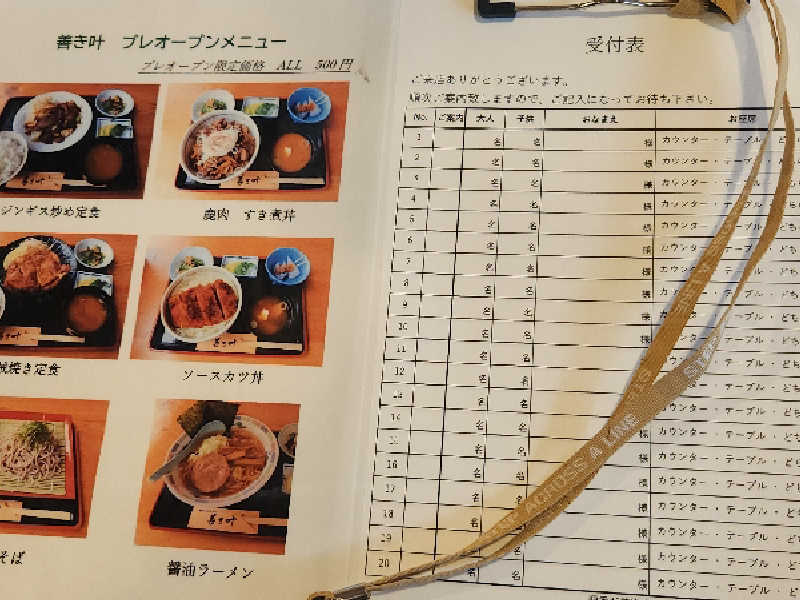 善き叶 プレオープンメニュー
プレオープン限定価格 ALL 500円
ジンギス炒め定食
鹿肉 すき煮丼
焼き定食
ソースカツ丼
そば
醤油ラーメン
善き叶
善き叶
善き叶
善き叶
受付表
ご来店ありがとうございます。
順次ご案内致しますので、ご記入になってお待ち下さい。
No. ご案内 大人 子供 おなまえ お座席
1 名 名 様 カウンター・テーブル・どち
2 名 名 様 カウンター・テーブル・ど
3 名 名 様 カウンター・テーブル・
4 名 名 様 カウンター・テーブル
5 名 名 様 カウンター・テーブル
6 名 名 様 カウンター・
7 名 名 様 カウン
8 名 名 様 カウンター
9 名 名 様 カウン
10 名 名 様
11 名 名 カウンター・テーブル・どち
12 名 名 テーブル・どち
13 名 名 ター・テーブル・どち
14 名 名 カウンター・テーブル・どち
15 名 名 様 カウンター・テーブル・ど
16 名 名 様 カウンター・テーブル・ど
17 名 名 様 カウンター・テーブル・ど
18 名 名 様 カウンター・テーブル・ど
19 名 名 様 カウンター・テーブル・ど
20 名 名 様 カウンター・テーブル・ど
ACROSS A LINE